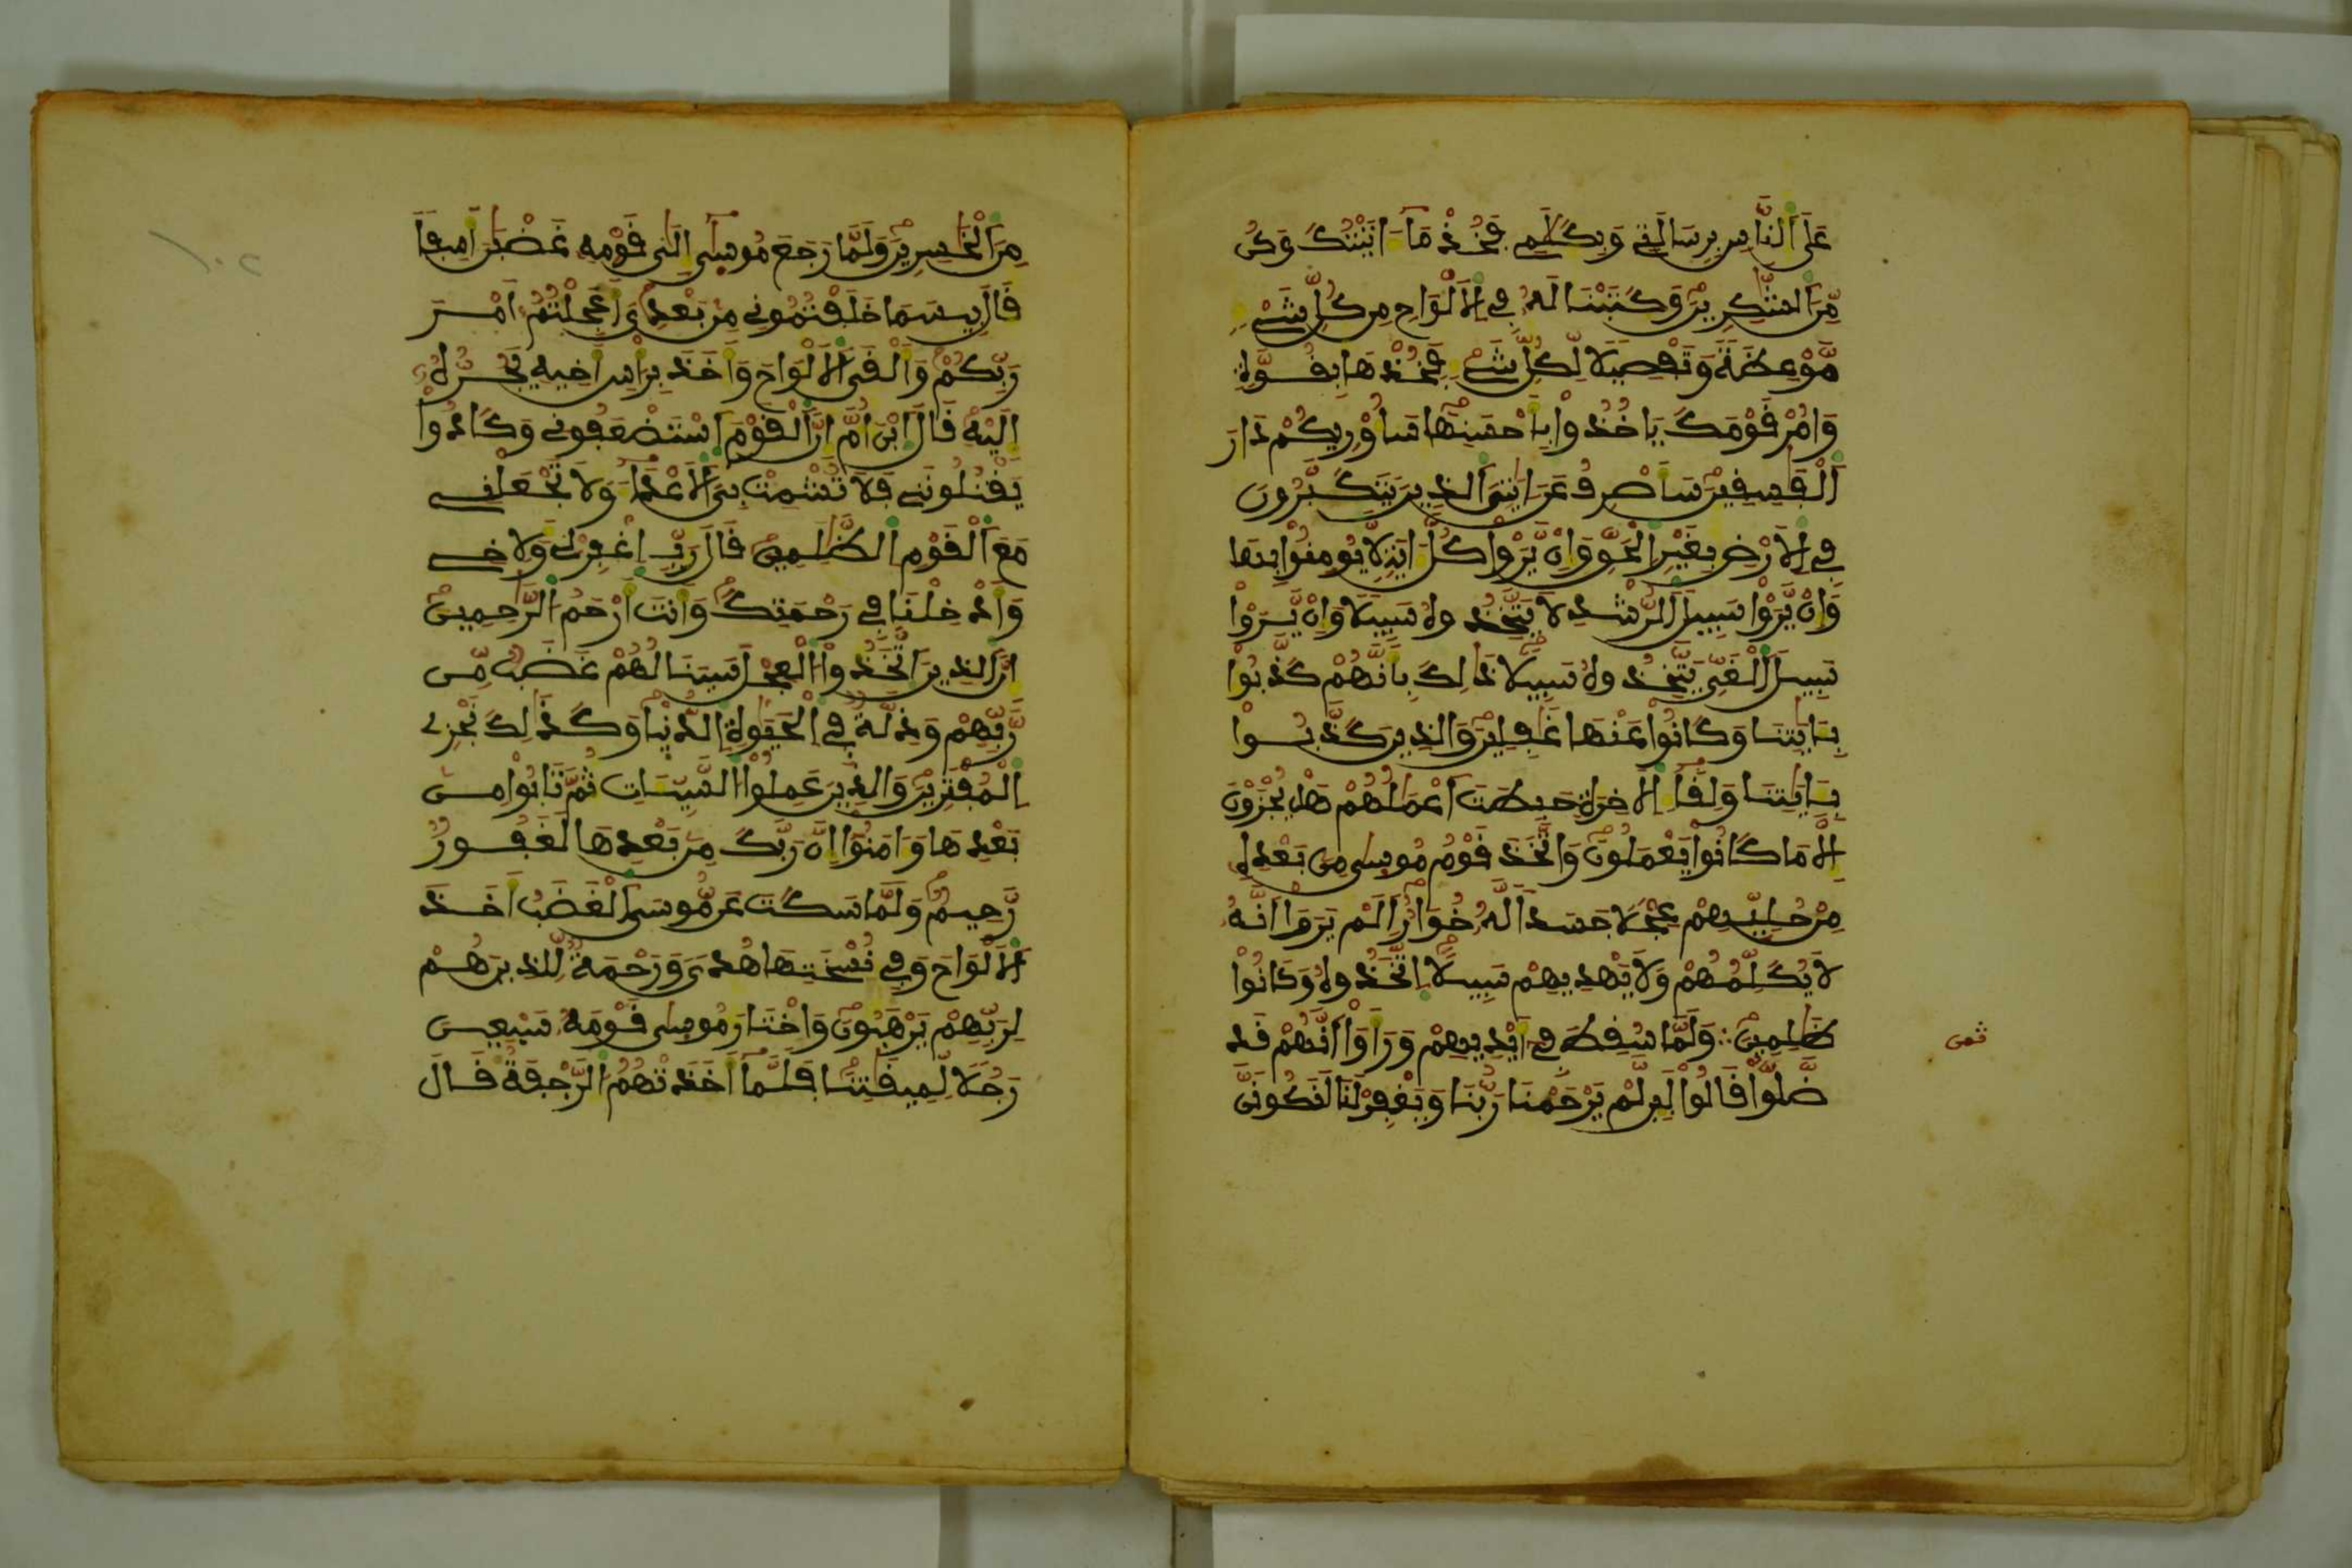 عَلَى اَ۬لنَّاسِ بِرِسَالَتِے وَبِكَلَٰمِے فَخُذْ مَآ ءَاتَيْتُكَ وَكُن
مِّنَ اَ۬لشَّٰكِرِينَ وَكَتَبْنَا لَهُۥ فِے اِ۬لَالْوَاحِ مِن كُلِّ شَےْءٖ
مَّوْعِظَةٗ وَتَفْصِيلاٗ لِّكُلِّ شَےْءٖ فَخُذْهَا بِقُوَّةٖ
وَامُرْ قَوْمَكَ يَاخُذُواْ بِأَحْسَنِهَا سَأُوْرِيكُمْ دَارَ
اَ۬لْفَٰسِقِينَ سَأَصْرِفُ عَنَ ـايَٰتِيَ اَ۬لذِينَ يَتَكَبَّرُونَ
فِے اِ۬لَارْضِ بِغَيْرِ اِ۬لْحَقِّ وَإِنْ يَّرَوْاْ كُلَّ ءَايَةٖ لَّا يُومِنُواْ بِهَا
وَإِنْ يَّرَوْاْ سَبِيلَ اَ۬لرُّشْدِ لَا يَتَّخِذُوهُ سَبِيلاٗ وَإِنْ يَّرَوْاْ
سَبِيلَ اَ۬لْغَيِّ يَتَّخِذُوهُ سَبِيلاٗ ذَٰلِكَ بِأَنَّهُمْ كَذَّبُواْ
بِـَٔايَٰتِنَا وَكَانُواْ عَنْهَا غَٰفِلِينَ وَالذِينَ كَذَّبُواْ
بِـَٔايَٰتِنَا وَلِقَآءِ اِ۬لَاخِرَةِ حَبِطَتَ اَعْمَٰلُهُمْ هَلْ يُجْزَوْنَ
إِلَّا مَا كَانُواْ يَعْمَلُونَ وَاتَّخَذَ قَوْمُ مُوسَىٰ مِنۢ بَعْدِهِۦ
مِنْ حُلِيِّهِمْ عِجْلاٗ جَسَداٗ لَّهُۥ خُوَارٌ اَلَمْ يَرَوَاْ اَنَّهُۥ
لَا يُكَلِّمُهُمْ وَلَا يَهْدِيهِمْ سَبِيلاٗ اِ۪تَّخَذُوهُ وَكَانُواْ
ظَٰلِمِينَ وَلَمَّا سُقِطَ فِےٓ أَيْدِيهِمْ وَرَأَوَاْ اَنَّهُمْ قَد
ضَّلُّواْ قَالُواْ لَئِن لَّمْ يَرْحَمْنَا رَبُّنَا وَيَغْفِرْ لَنَا لَنَكُونَنَّ
ثمن
مِنَ اَ۬لْخَٰسِرِينَ وَلَمَّا رَجَعَ مُوسَىٰٓ إِلَىٰ قَوْمِهِۦ غَضْبَٰنَ أَسِفاٗ
قَالَ بِيسَمَا خَلَفْتُمُونِے مِنۢ بَعْدِيَ أَعَجِلْتُمُۥٓ أَمْرَ
رَبِّكُمْ وَأَلْقَى اَ۬لَالْوَاحَ وَأَخَذَ بِرَأْسِ أَخِيهِ يَجُرُّهُۥٓ
إِلَيْهِ قَالَ اَ۪بْنَ أُمَّ إِنَّ اَ۬لْقَوْمَ اَ۪سْتَضْعَفُونِے وَكَادُواْ
يَقْتُلُونَنِے فَلَا تُشْمِتْ بِيَ اَ۬لَاعْدَآءَ وَلَا تَجْعَلْنِے
مَعَ اَ۬لْقَوْمِ اِ۬لظَّٰلِمِينَ قَالَ رَبِّ اِ۪غْفِرْ لِے وَلِأَخِے
وَأَدْخِلْنَا فِے رَحْمَتِكَ وَأَنتَ أَرْحَمُ اُ۬لرَّٰحِمِينَ
إِنَّ اَ۬لذِينَ اَ۪تَّخَذُواْ اُ۬لْعِجْلَ سَيَنَالُهُمْ غَضَبٞ مِّن
رَّبِّهِمْ وَذِلَّةٞ فِے اِ۬لْحَيَوٰةِ اِ۬لدُّنْي۪ا وَكَذَٰلِكَ نَجْزِے
اِ۬لْمُفْتَرِينَ وَالذِينَ عَمِلُواْ اُ۬لسَّيِّـَٔاتِ ثُمَّ تَابُواْ مِنۢ
بَعْدِهَا وَءَامَنُوٓاْ إِنَّ رَبَّكَ مِنۢ بَعْدِهَا لَغَفُورٞ
رَّحِيمٞ وَلَمَّا سَكَتَ عَن مُّوسَى اَ۬لْغَضَبُ أَخَذَ
اَ۬لَالْوَاحَ وَفِے نُسْخَتِهَا هُديٗ وَرَحْمَةٞ لِّلذِينَ هُمْ
لِرَبِّهِمْ يَرْهَبُونَ وَاخْتَارَ مُوسَىٰ قَوْمَهُۥ سَبْعِينَ
رَجُلاٗ لِّمِيقَٰتِنَا فَلَمَّآ أَخَذَتْهُمُ اُ۬لرَّجْفَةُ قَالَ
١٠٢